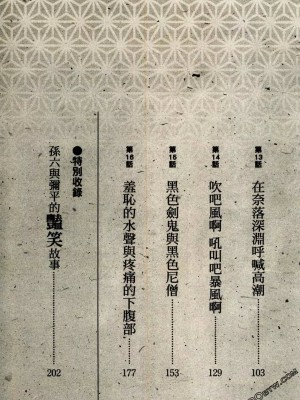 第13話
在奈落深淵呼喊高潮…………103
第14話
吹吧風啊 吼叫吧暴風啊…………129
第15話
黑色劍鬼與黑色尼僧…………153
第16話
羞恥的水聲與疼痛的下腹部…………177
●特別收錄
孫六與彌平的豔笑故事…………202